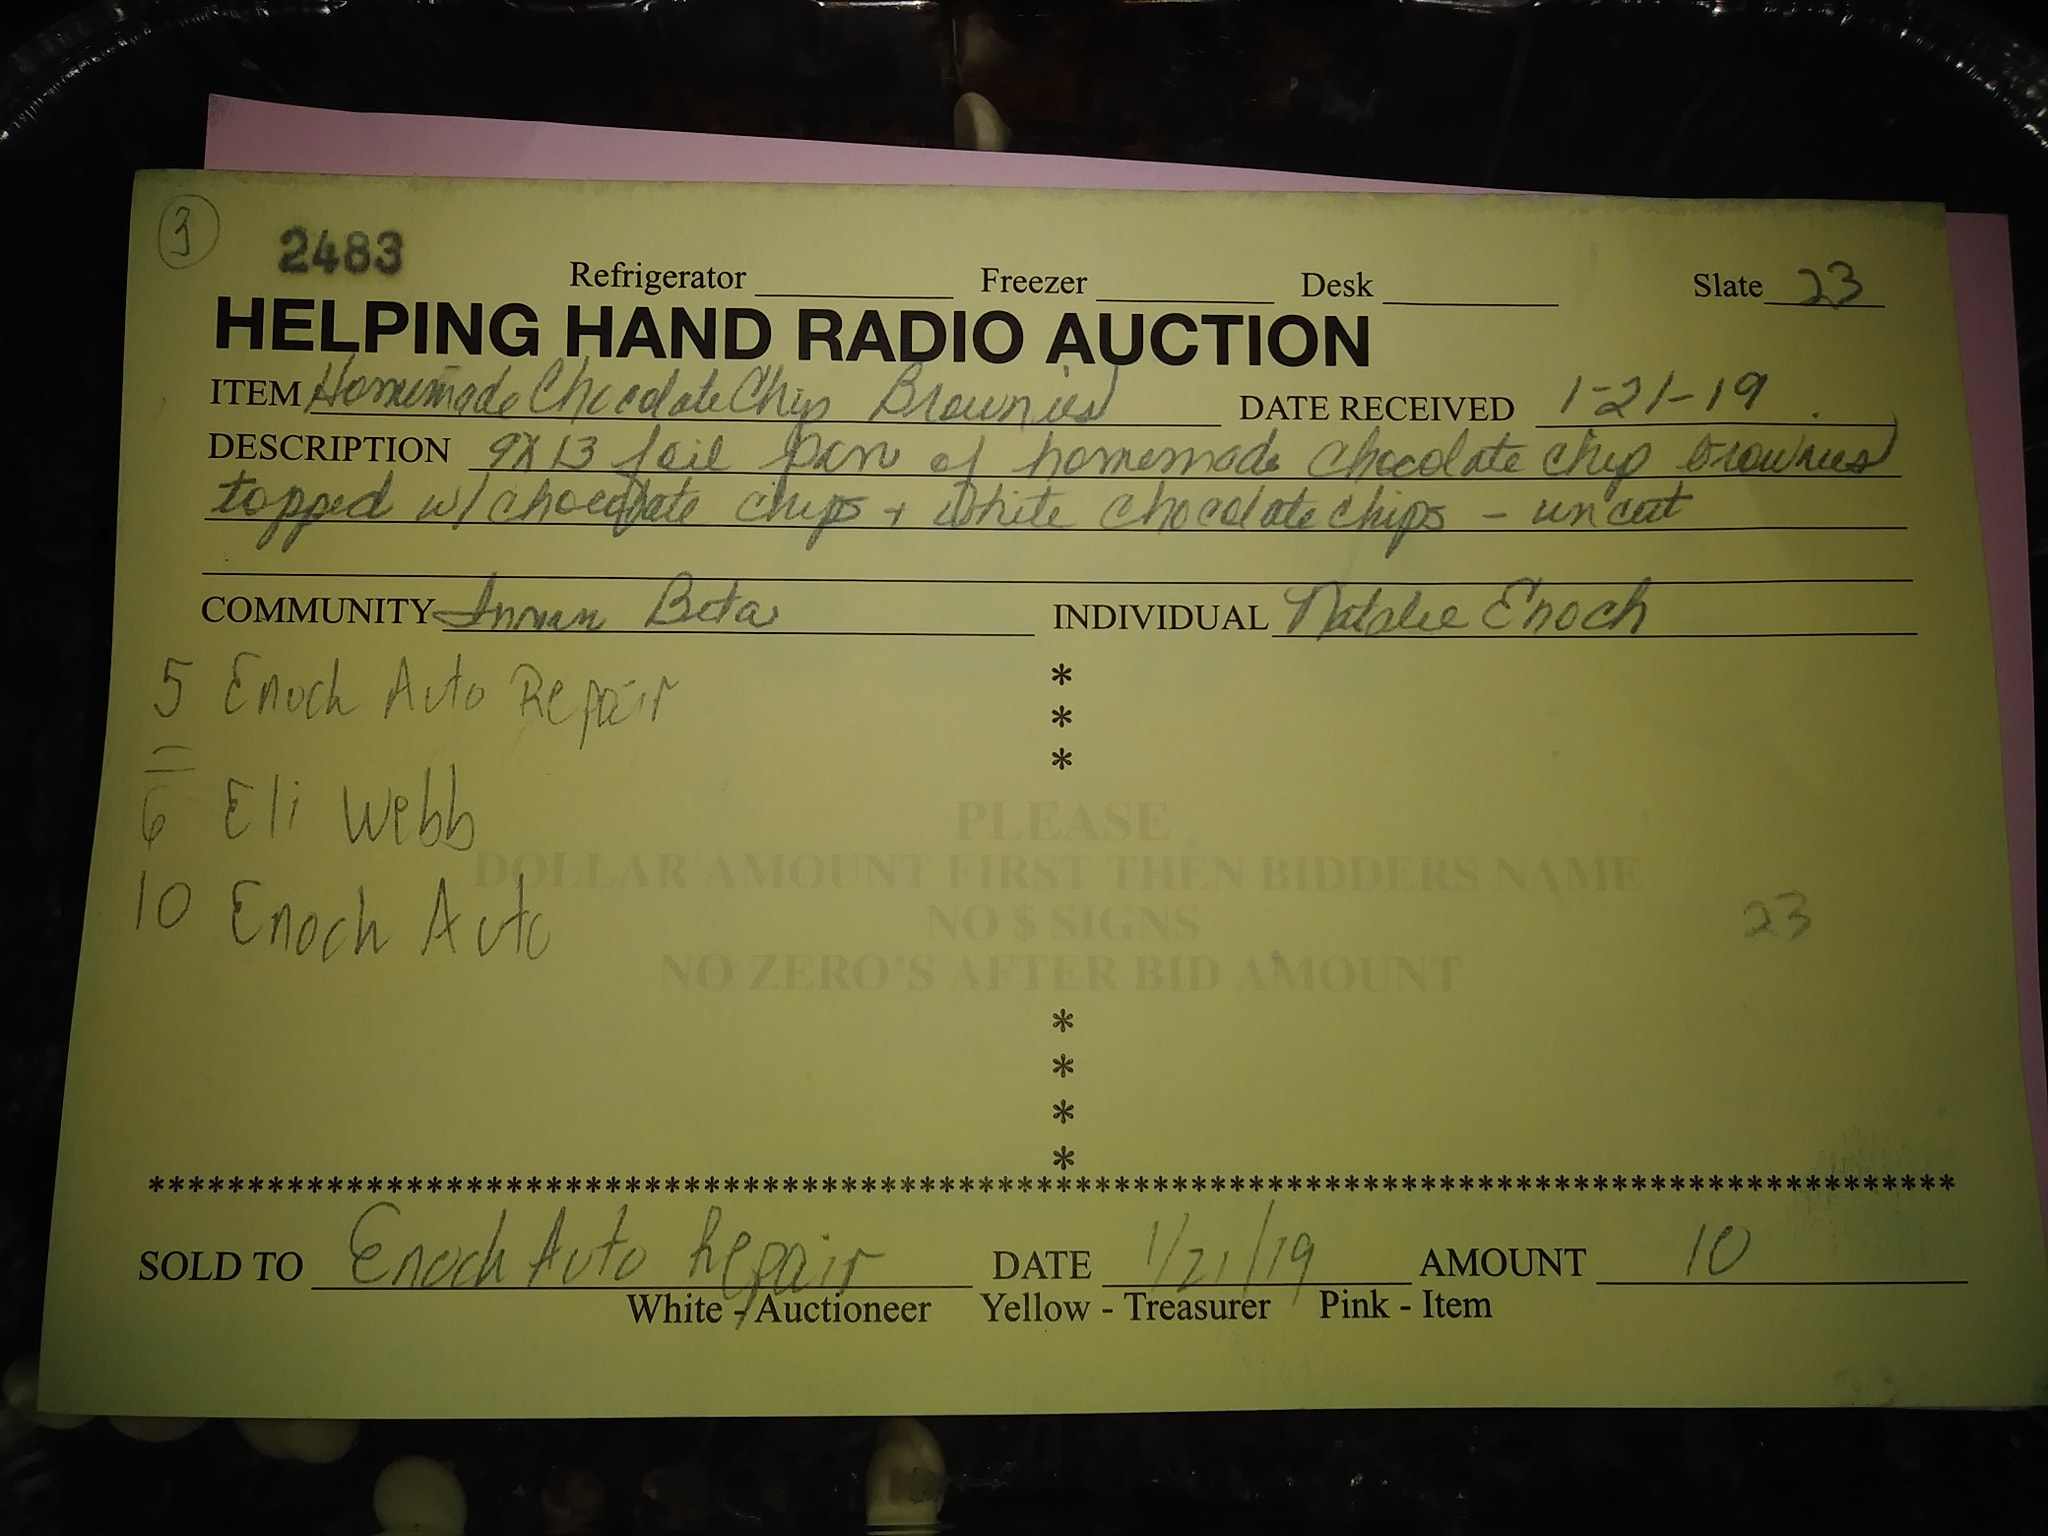 3
2483
Refrigerator Freezer Desk Slate 23
HELPING HAND RADIO AUCTION
ITEM Homemade Chocolate Chip Brownies DATE RECEIVED 1-21-19
DESCRIPTION 9x13 foil pan of homemade chocolate chip brownies
topped w/ chocolate chips + white chocolate chips - uncut
COMMUNITY Inman Beta INDIVIDUAL Natalie Enoch
5 Enoch Auto Repair
*
*
*
6 Eli Webb
PLEASE
DOLLAR AMOUNT FIRST THEN BIDDERS NAME
10 Enoch Auto
NO $ SIGNS
23
NO ZERO'S AFTER BID AMOUNT
*
*
*
*
*******************************************************************************************
SOLD TO Enoch Auto Repair DATE 1/21/19 AMOUNT 10
White - Auctioneer Yellow - Treasurer Pink - Item